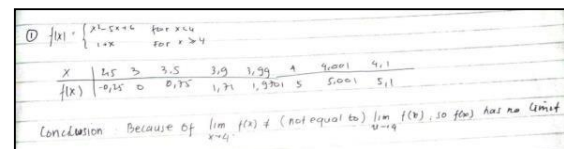 ① f(x) = { x² - 5x + 6 for x < 4
1 + x for x ≥ 4
x 2,5 3 3.5 3,9 3,99 4 4,001 4,1
f(x) -0,25 0 0,75 1,71 1,9701 5 5.001 5,1
Conclusion : Because of lim x→4⁻ f(x) ≠ (not equal to) lim x→4 f(x), so f(x) has no limit